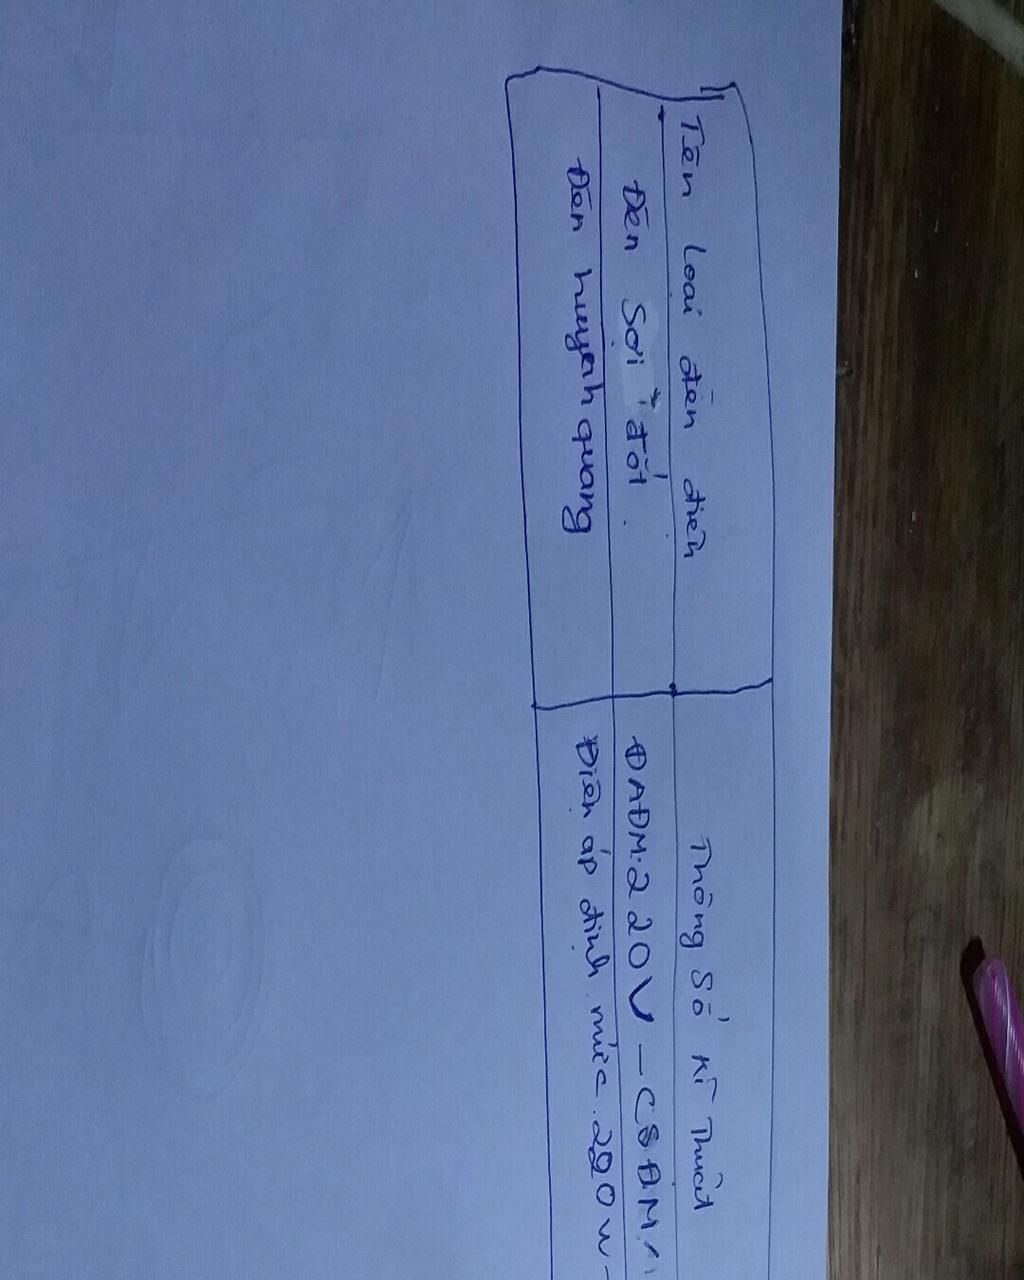 Tên loại đèn điện
Thông số kĩ thuật
Đèn sợi đốt.
ĐAĐM.220V - CSĐM
Đèn huỳnh quang
Điện áp định mức.220v-